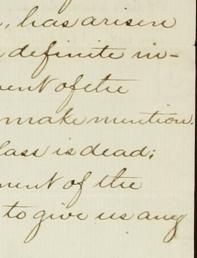 , has arisen
definite in-
ent of the
make mention.
lass is dead;
ment of the
to give us any